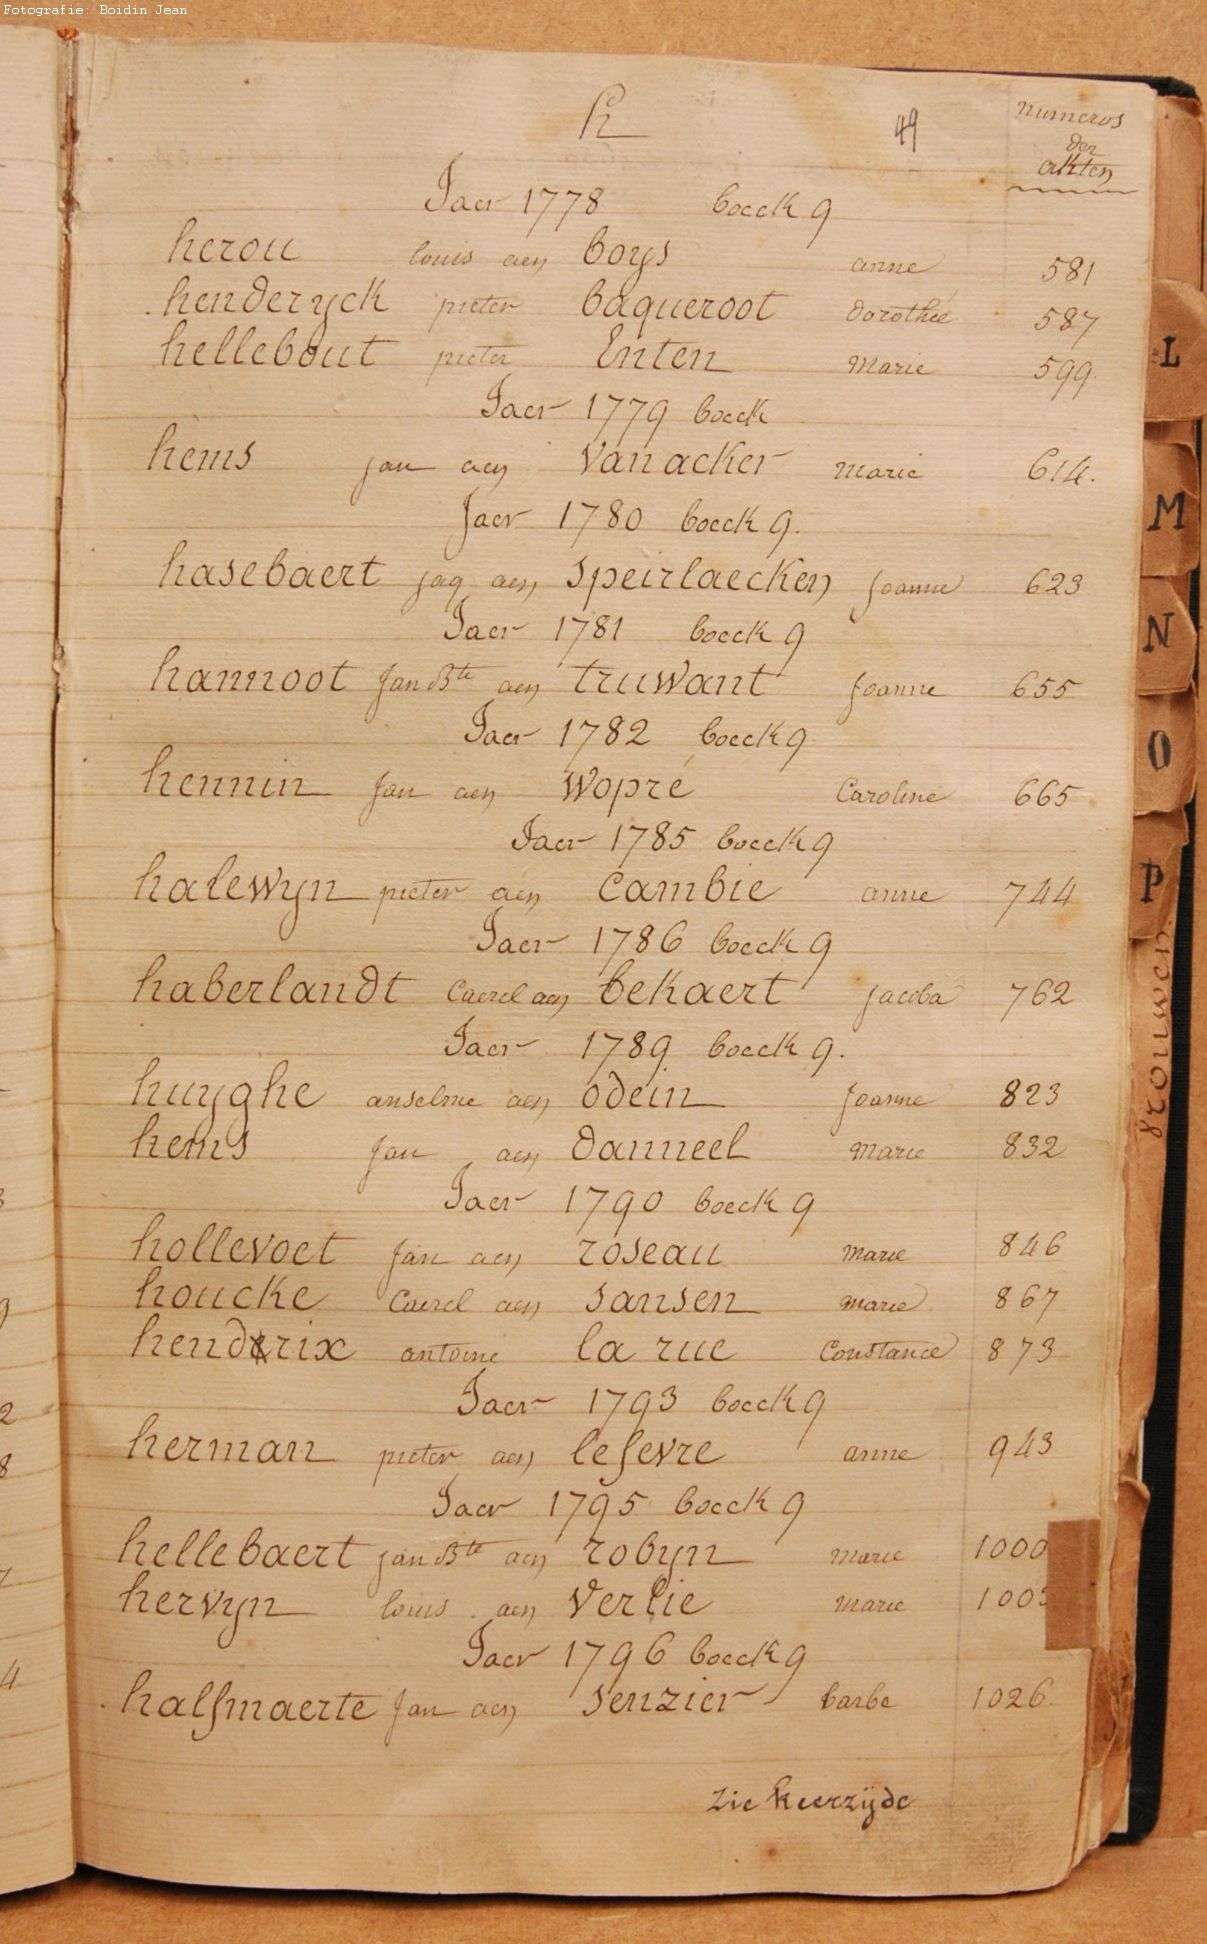 Fotografie: Boidin Jean
h 49 numeros
der
akten
Jaer 1778 boeck 9
herou louis aen boys anne 581
henderyck pieter baqueroot dorothée 587
hellebout pieter Enten Marie 599
Jaer 1779 boeck
hems jan aen vanacker marie 614.
Jaer 1780 boeck 9.
hasebaert jaq aen speirlaecken joanne 623
Jaer 1781 boeck 9
hannoot jan Bte aen truwant joanne 655
Jaer 1782 boeck 9
hennin jan aen wopré Caroline 665
Jaer 1785 boeck 9
halewyn pieter aen Cambie anne 744
Jaer 1786 boeck 9
haberlandt Caerel aen bekaert jacoba 762
Jaer 1789 boeck 9.
huyghe anselme aen odein joanne 823
hems jan aen danneel marie 832
Jaer 1790 boeck 9
hollevoet jan aen roseau marie 846
houcke Caerel aen sansen marie 867
henderix antoine la rue Constance 873
Jaer 1793 boeck 9
herman pieter aen lefevre anne 943
Jaer 1795 boeck 9
hellebaert jan Bte aen robyn marie 1000
hervyn louis aen verlie marie
Jaer 1796 boeck 9
halfmaerte jan aen senzier barbe 1026
zie keerzijde
L
M
N
O
P
vrouwen